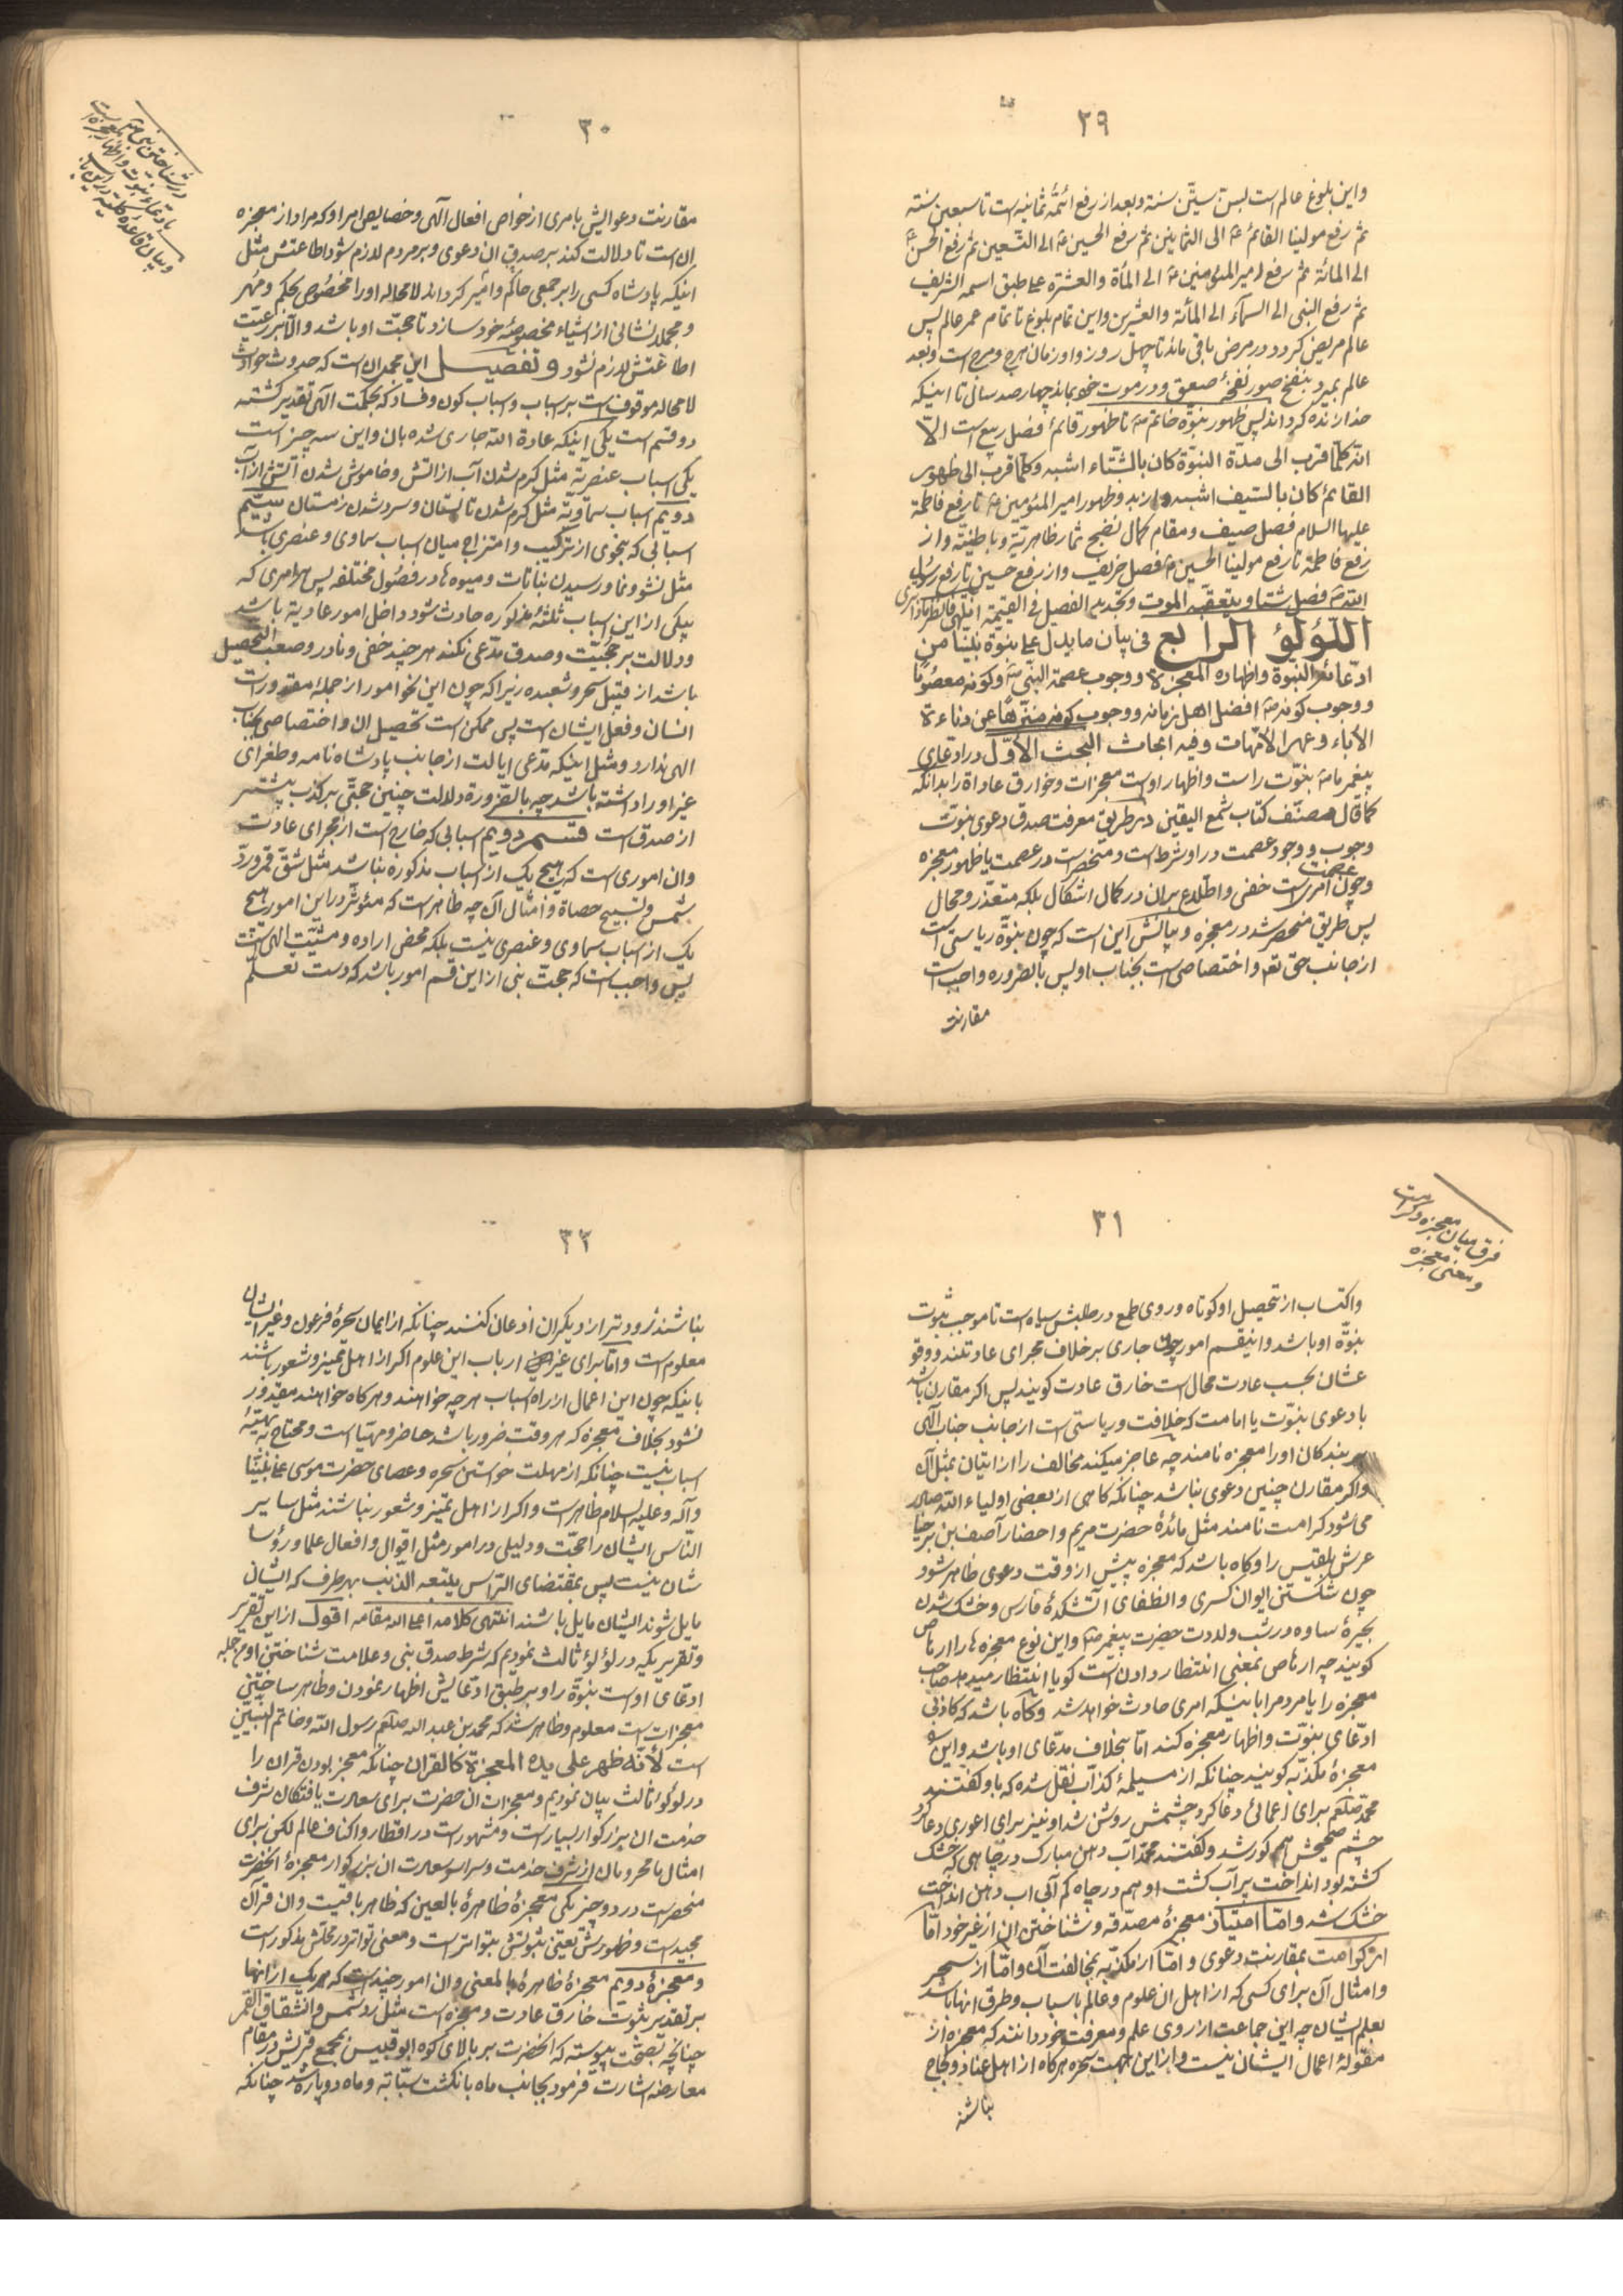 ۲۹
واین بلوغ عالم است بسن ستین سنة وبعد از رفع ائمّه ثمانیه است تا سبعین سنته
ثم رفع مولینا القائم ع الی الثمانین ثم رفع الحسین ع الی التسعین ثم رفع الحسن ع
الی المائة ثم رفع امیر المؤمنین ع الی المأة والعشرة علی طبق اسمه الشریف
ثم رفع النبی الی السمآء الی المأئة والعشرین واین تمام بلوغ تا تمام عمر عالم پس
عالم مریض کردد ودر مرض باقی ماند تا چهل روز واو زمان هرج ومرج است وبعد
عالم بمیرد بنفخ صور نفخهٔ صعق ودر موت خود بماند چهار صد سال تا اینکه
خدا زنده کرداند پس ظهور نبوّة خاتم ص تا ظهور قائم فصل ربیع است الّا
انّه کلّما قرب الی مدة النبوّة کان بالشّتاء اشبه وکلّما قرب الی ظهور
القائم کان بالصیف اشبه وظهور امیر المؤمنین ع تا رفع فاطمة
علیها السلام فصل صیف ومقام کمال نضج ثمار ظاهریّة وباطنیّة واز
رفع فاطمة تا رفع مولینا الحسین ع فصل خریف واز رفع حسین تا رفع رسول
الله ص فصل شتا ویتعقّبه الموت وتجدید الفصل فی القیمة انتهی فانظر ماذا تری
اللؤلؤ الرابع فی بیان ما یدل علی نبوة نبیّنا من
ادّعائه النبوّة واظهاره المعجزة ووجوب عصمة النبی ص وکونه معصومًا
ووجوب کونه ص افضل اهل زمانه ووجوب کونه منزّهًا عن دناءة
الآباء وعهر الامّهات وفیه ابحاث البحث الاوّل در ادعای
پیغمبر ما ص نبوّت را ست واظهار اوست معجزات وخوارق عاداة را بدانکه
کما قال مصنّف کتاب شمع الیقین در طریق معرفت صدق دعوی نبوّت
وجوب ووجود عصمت در او شرط است ومنحصر است در عصمت یا ظهور معجزه
وچون عصمت امری است خفی واطّلاع بران در کمال اشکال بلکه متعذّر ومحال
پس طریق منحصر شد در معجزه وبیانش این است که چون نبوّة ریاستی است
از جانب حق تعم واختصاصی است بجناب او پس بالضروره واجب است
مقارنت
۳۰
در شناختن نبی ص
بادعاء نبوّت واظهار معجزه است
وبیان قاعده
مقارنت دعوایش بامری از خواص افعال آلهی وخصایص امر او که مراد از معجزه
ان است تا دلالت کند بر صدق ان دعوی وبر مردم لازم شود اطاعتش مثل
اینکه پادشاه کسی را بر جمعی حاکم وامیر کرداند لا محاله او را مخصوص بحکم ومُهر
ومجملا نشانی از اشیاء مخصوصهٔ خود سازد تا حجّت او باشد والّا بر رعیّت
اطاعتش لازم نشود وتفصیل این مجمل ان است که حدوث حوادث
لا محاله موقوفست بر اسباب واسباب کون وفساد که بحکمت آلهی تقدیر کشته
دو قسم است یکی اینکه عادة الله جاری شده بان واین سه چیز است
یکی اسباب عنصریّه مثل کرم شدن آب از اتش وخاموش شدن آتش از آب
دویم اسباب سماویّه مثل کرم شدن تابستان وسرد شدن زمستان سیّم
اسبابی که بنحوی از ترکیب وامتزاج میان اسباب سماوی وعنصری باشد
مثل نشو ونما ورسیدن نباتات ومیوه ها در فصُول مختلفه پس هر امری که
بیکی از این اسباب ثلثهٔ مذکوره حادث شود داخل امور عادیة باشد
ودلالت بر حجّیّت وصدق مدّعی نکند هر چند خفی ونادر وصعب التحصیل
باشد از قبیل سحر وشعبده زیرا که چون این نحو امور از جملهٔ مقدورات
انسان وفعل ایشان است پس ممکن است تحصیل ان واختصاصی بجناب
الهی ندارد ومثل اینکه مدّعی ایالت از جانب پادشاه نامه وطغرای
غیر او را داشته باشد چه بالضّرورة دلالت چنین حجّتی بر کذب بیشتر
از صدق است قسم دویم اسبابی که خارج است از مجرای عادت
وان اموری است که هیچ یک از اسباب مذکوره نباشد مثل شقّ قمر وردّ
شمس وتسبیح حصاة وامثال آن چه ظاهر است که مؤثّر در این امور هیچ
یک از اسباب سماوی وعنصری نیست بلکه محض اراده ومشیّت الهی است
پس واجب است که حجت نبی از این قسم امور باشد که دست تعلّم
۳۱
فرق میان معجزه وکرامت
ومعنی معجزه
واکتساب از تحصیل او کوتاه وروی طمع در طلبش سیاه است تا موجب ثبوت
نبوّة او باشد واینقسم امور چون جاری بر خلاف مجرای عادتند ووقو
عشان بحسب عادت محال است خارق عادت کویند پس اکر مقارن باشد
با دعوی نبوّت یا امامت که خلافت وریاستی است از جانب جناب آلهی
بر بندکان او را معجزه نامند چه عاجز میکند مخالف را از اتیان بمثل آن
واکر مقارن چنین دعوی نباشد چنانکه کاهی از بعضی اولیاء الله صادر
می شود کرامت نامند مثل مائدهٔ حضرت مریم واحضار آصف بن برخیا
عرش بلقیس را وکاه باشد که معجزه پیش از وقت دعوی ظاهر شود
چون شکستن ایوان کسری وانطفای اتشکدهٔ فارس وخشک شدن
بحیرهٔ ساوه در شب ولادت حضرت پیغمبر ص واین نوع معجزه ها را ارهاص
کویند چه ارهاص بمعنی انتظار دادن است کویا انتظار میدهد صاحب
معجزه را یا مردمرا باینکه امری حادث خواهد شد وکاه باشد که کاذبی
ادّعای نبوّت واظهار معجزه کند امّا بخلاف مدّعای او باشد واین
معجزهٔ مکذّبه کویند چنانکه از مسیلمهٔ کذّاب نقل شده که باو کفتند
محمّد صلعم برای اعمائی دعا کرد چشمش روشن شد او نیز برای اعوری دعا کرد
چشم صحیحش هم کور شد وکفتند محمّد آب دهن مبارک در چاهی که خشک
کشته بود انداخت پر آب کشت او هم در چاه کم آبی اب دهن انداخت
خشک شد وامّا امتیاز معجزهٔ مصدّقه وشناختن ان از غیر خود امّا
از کرامت بمقارنت دعوی وامّا از مکذّبه بمخالفت آن وامّا از سحر
وامثال آن برای کسی که از اهل ان علوم وعالم باسباب وطرق انها باشد
بعلم ایشان چه این جماعت از روی علم ومعرفت خود دانند که معجزه از
مقولهٔ اعمال ایشان نیست واز این جهت سحره هرکاه از اهل عناد ولجاج
نباشند
۳۲
نباشند زودتر از دیکران اذعان کنند چنانکه از ایمان سحرهٔ فرعون وغیر ایشان
معلوم است وامّا برای غیر ارباب این علوم اکر از اهل تمیز وشعور باشند
باینکه چون این اعمال از راه اسباب هر چه خواهند وهرکاه خواهند مقدور
نشود بخلاف معجزه که هر وقت ضرور باشد حاضر ومهیّا است ومحتاج به تهیّهٔ
اسباب نیست چنانکه از مهلت خواستن سحره وعصای حضرت موسی علی نبیّنا
وآله وعلیه السلام ظاهر است واکر از اهل تمیز وشعور نباشند مثل سایر
النّاس ایشان را حجّت ودلیلی در امور مثل اقوال وافعال علما ورؤسا
شان نیست پس بمقتضای الرّاس یتبعه الذّنب بهر طرف که ایشان
مایل شوند ایشان مایل باشند انتهی کلامه اعلی الله مقامه اقول از این تقریر
وتقریریکه در لؤلؤ ثالث نمودیم که شرط صدق نبی وعلامت شناختن او من جمله
ادّعای اوست نبوّة را وبر طبق ادّعایش اظهار نمودن وظاهر ساختن
معجزات است معلوم وظاهر شد که محمد بن عبد الله صلعم رسول الله وخاتم النبیین
است لأنّه ظهر علی یده المعجزة کالقران چنانکه معجز بودن قران را
در لؤلؤ ثالث بیان نمودیم ومعجزات ان حضرت برای سعادت یافتکان شرف
خدمت ان بزرکوار بسیار است ومشهور است در اقطار واکناف عالم لکن برای
امثال ما محرومان از شرف خدمت وسراسر سعادت ان بزرکوار معجزهٔ انحضرت
منحصر است در دو چیز یکی معجزهٔ ظاهرهٔ بالعین که ظاهر باقیست وان قرآن
مجید است وظهورش یعنی ثبوتش بتواتر است ومعنی تواتر در محلّش مذکور است
ومعجزهٔ دویم معجزهٔ ظاهرهٔ بالمعنی وان امور چند است که هر یک از انها
بر تقدیر ثبوت خارق عادت ومعجزه است مثل رد شمس وانشقاق القمر
چنانچه بصحّت پیوسته که انحضرت بر بالای کوه ابو قبیس بجمع قریش در مقام
معارضه اشارت فرمود بجانب ماه بانکشت سبّابه وماه دوپاره شد چنانکه